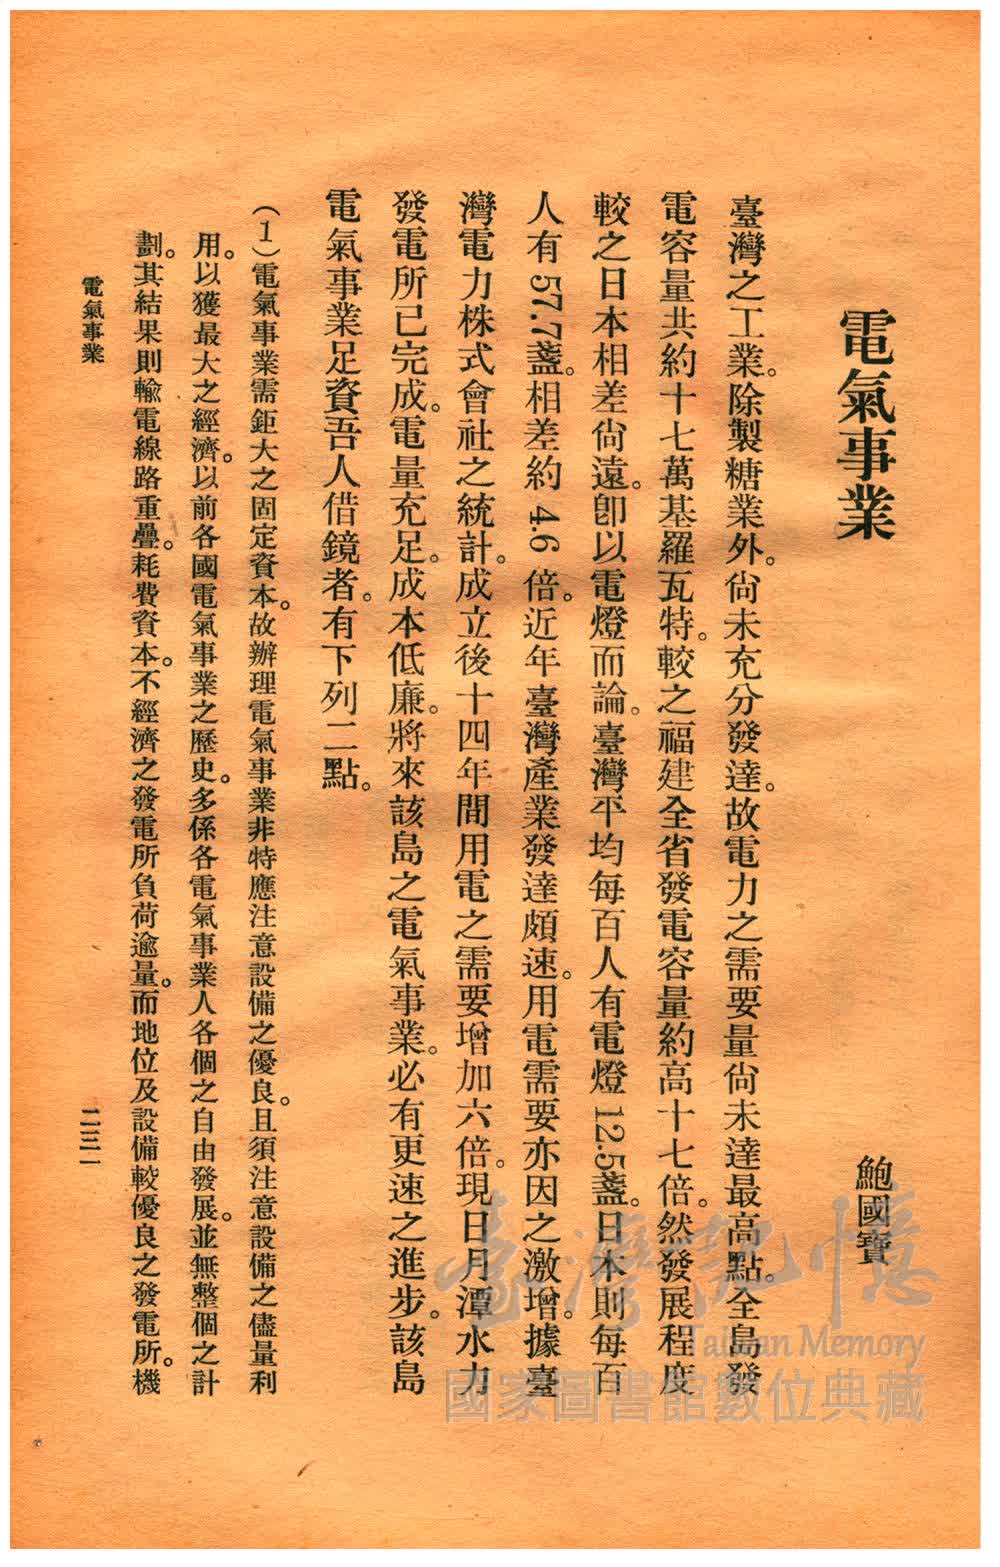 電氣事業
鮑國寶
臺灣之工業。除製糖業外。尙未充分發達。故電力之需要量尙未達最高點。全島發
電容量共約十七萬基羅瓦特。較之福建全省發電容量約高十七倍。然發展程度
較之日本相差尙遠。卽以電燈而論。臺灣平均每百人有電燈12.5盞。日本則每百
人有57.7盞。相差約4.6倍。近年臺灣產業發達頗速。用電需要亦因之激增。據臺
灣電力株式會社之統計。成立後十四年間用電之需要增加六倍。現日月潭水力
發電所已完成。電量充足。成本低廉。將來該島之電氣事業。必有更速之進步。該島
電氣事業足資吾人借鏡者。有下列二點。
(1)電氣事業需鉅大之固定資本。故辦理電氣事業非特應注意設備之優良。且須注意設備之儘量利
用。以獲最大之經濟。以前各國電氣事業之歷史。多係各電氣事業人各個之自由發展。並無整個之計
劃。其結果則輸電線路重疊。耗費資本。不經濟之發電所負荷逾量。而地位及設備較優良之發電所。機
電氣事業
二三一
臺灣記憶
Taiwan Memory
國家圖書館數位典藏